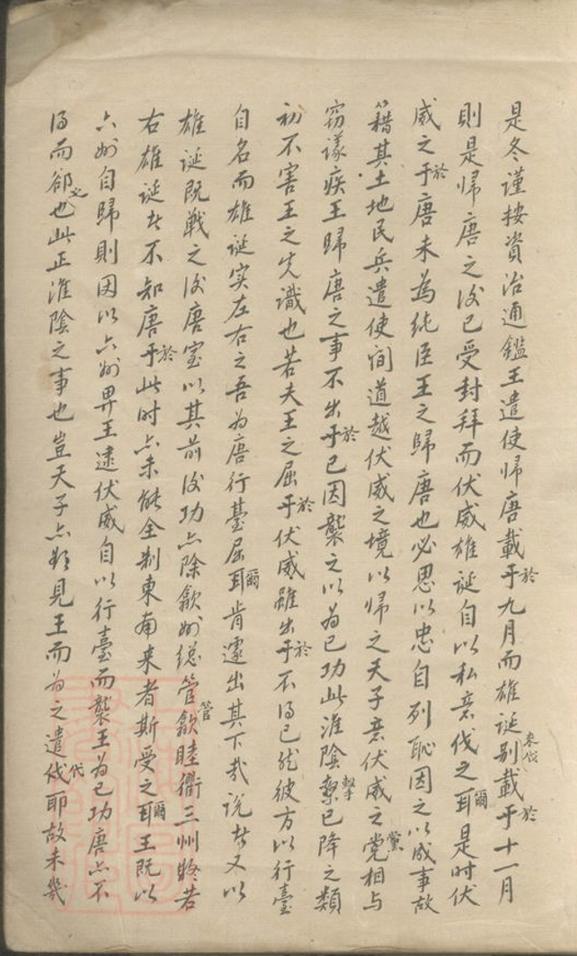 是冬謹按資治通鑑王遣使帰唐載于於九月而雄誕別来伐載于於十一月
則是帰唐之後已受封拜而伏威雄誕自以私意伐之耳爾是时伏
威之于於唐未為純臣王之歸唐也必思以忠自列恥因之以成事故
籍其土地民兵遣使间道越伏威之境以帰之天子意伏威之党黨相与
窃議疾王歸唐之事不出于於己因襲之以為已功此淮陰擊已降之類
初不害王之先識也若夫王之屈于於伏威雖出于於不得已然彼方以行臺
自名而雄誕实左右之吾為唐行臺屈耳爾肯遽出其下哉说者又以
雄誕既戦之後唐室以其前後功亦除歙州総管管歙睦衢三州将若
右雄誕者不知唐于於此时亦未能全制東南来者斯受之耳爾王既以
六州自歸則因以六州畀王逮伏威自以行臺而襲王為已功唐亦不
得而郤也此正淮陰之事也豈天子亦欲見王而為之遣伐代耶故未幾